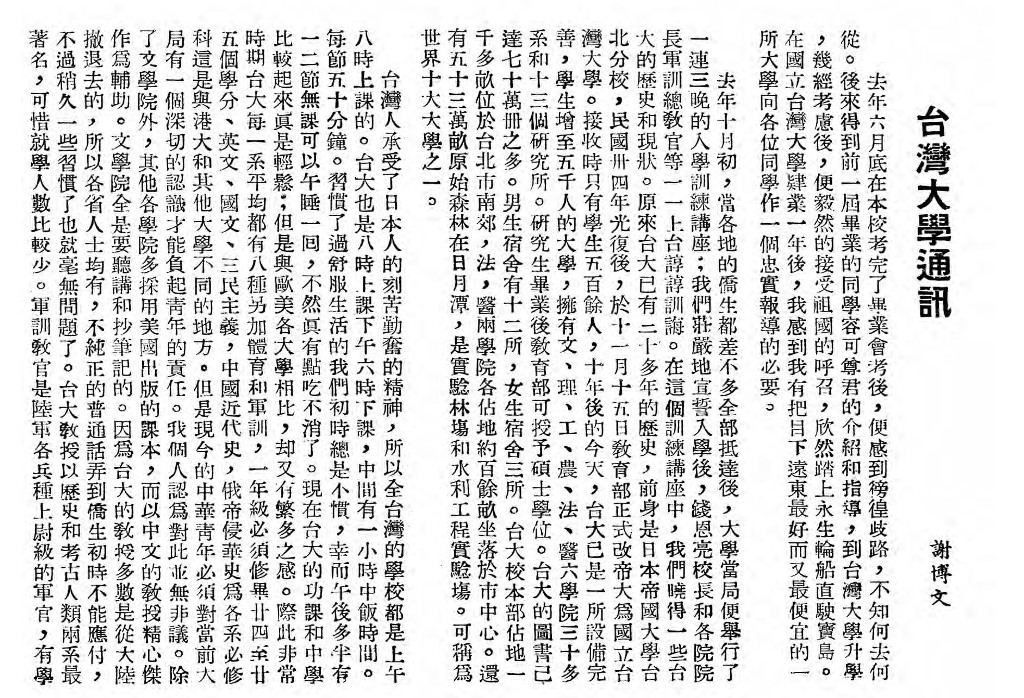 台灣大學通訊
謝博文
去年六月底在本校考完了畢業會考後，便感到徬徨歧路，不知何去何
從。後來得到前一屆畢業的同學容可尊君的介紹和指導，到台灣大學升學
，幾經考慮後，便毅然的接受祖國的呼召，欣然踏上永生輪船直駛寶島。
在國立台灣大學肄業一年後，我感到我有把目下遠東最好而又最便宜的一
所大學向各位同學作一個忠實報導的必要。
去年十月初，當各地的僑生都差不多全部抵達後，大學當局便舉行了
一連三晚的入學訓練講座；我們莊嚴地宣誓入學後，錢思亮校長和各院院
長軍訓總教官等一一上台諄諄訓誨。在這個訓練講座中，我們曉得一些台
大的歷史和現狀。原來台大已有二十多年的歷史，前身是日本帝國大學台
北分校，民國卅四年光復後，於十一月十五日教育部正式改帝大為國立台
灣大學。接收時只有學生五百餘人，十年後的今天，台大已是一所設備完
善，學生增至五千人的大學，擁有文、理、工、農、法、醫六學院三十多
系和十三個研究所。研究生畢業後教育部可授予碩士學位。台大的圖書己
達七十萬冊之多。男生宿舍有十二所，女生宿舍三所。台大校本部佔地一
千多畝位於台北市南郊，法，醫兩學院各佔地約百餘畝坐落於市中心。還
有五十三萬畝原始森林在日月潭，是實驗林場和水利工程實驗場。可稱為
世界十大大學之一。
台灣人承受了日本人的刻苦勤奮的精神，所以全台灣的學校都是上午
八時上課的。台大也是八時上課下午六時下課，中間有一小時中飯時間。
每節五十分鐘。習慣了過舒服生活的我們初時總是不慣，幸而午後多半有
一二節無課可以午睡一回，不然眞有點吃不消了。現在台大的功課和中學
比較起來眞是輕鬆；但是與歐美各大學相比，却又有繁多之感。際此非常
時期台大每一系平均都有八種另加體育和軍訓，一年級必須修畢廿四至廿
五個學分、英文、國文、三民主義，中國近代史，俄帝侵華史為各系必修
科這是與港大和其他大學不同的地方。但是現今的中華靑年必須對當前大
局有一個深切的認識才能負起靑年的責任。我個人認為對此並無非議。除
了文學院外，其他各學院多採用美國出版的課本，而以中文的教授精心傑
作為輔助。文學院全是要聽講和抄筆記的。因為台大的教授多數是從大陸
撤退去的，所以各省人士均有，不純正的普通話弄到僑生初時不能應付，
不過稍久一些習慣了也就毫無問題了。台大教授以歷史和考古人類兩系最
著名，可惜就學人數比較少。軍訓教官是陸軍各兵種上尉級的軍官，有學